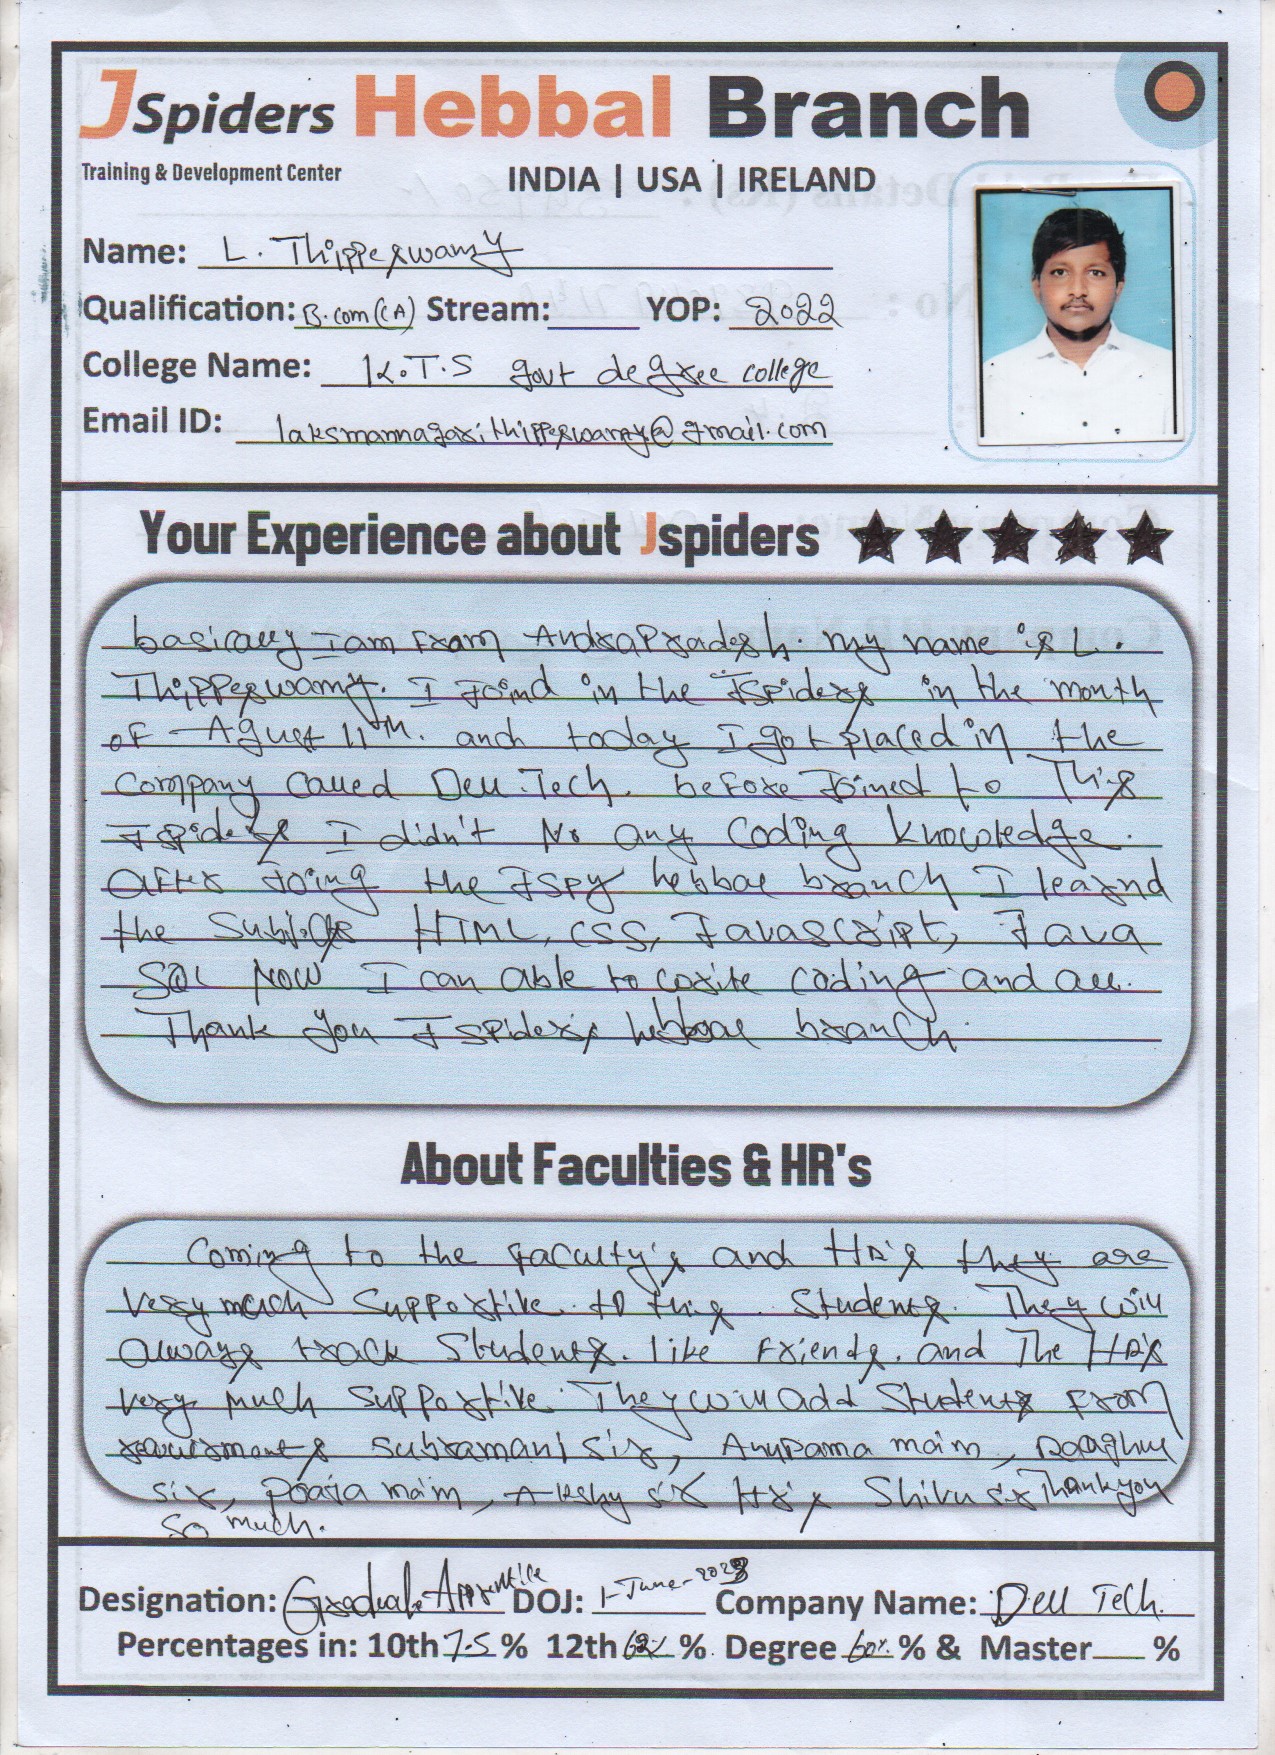 JSpiders Hebbal Branch
Training & Development Center
INDIA | USA | IRELAND
Name: L. Thippeswamy
Qualification: B.com(CA) Stream: YOP: 2022
College Name: K.T.S govt degree college
Email ID: laksmannagarithippeswamy@gmail.com
Your Experience about Jspiders
basically I am From AndraPradesh. my name is L.
Thippeswamy. I Joind in the JSpiders in the month
of Agust 11th. and today I got placed in the
Company Called Dell.Tech. before Joined to This
Jspiders I didn't No any Coding knowledge.
After Joing the JSPY hebbal branch I learnd
the Subjects HTML, CSS, JavaScript, Java
SQL Now I can able to write coding and all.
Thank you Jspiders hebbal branch.
About Faculties & HR's
Coming to the faculty's and HR's they are
Very much Supportive to this Students. They will
always track Students. like Friends. and The HR's
very much Supportive. They will add Students From
Subramani sir, Anupama mam, Raaghu
sir, Pooja mam, Akshy sir HR's Shivu sir Thankyou
So much.
Designation: Graduate Apprentice DOJ: 1-June-2023 Company Name: Dell Tech.
Percentages in: 10th 7.5 % 12th 62% % Degree 60% % & Master %